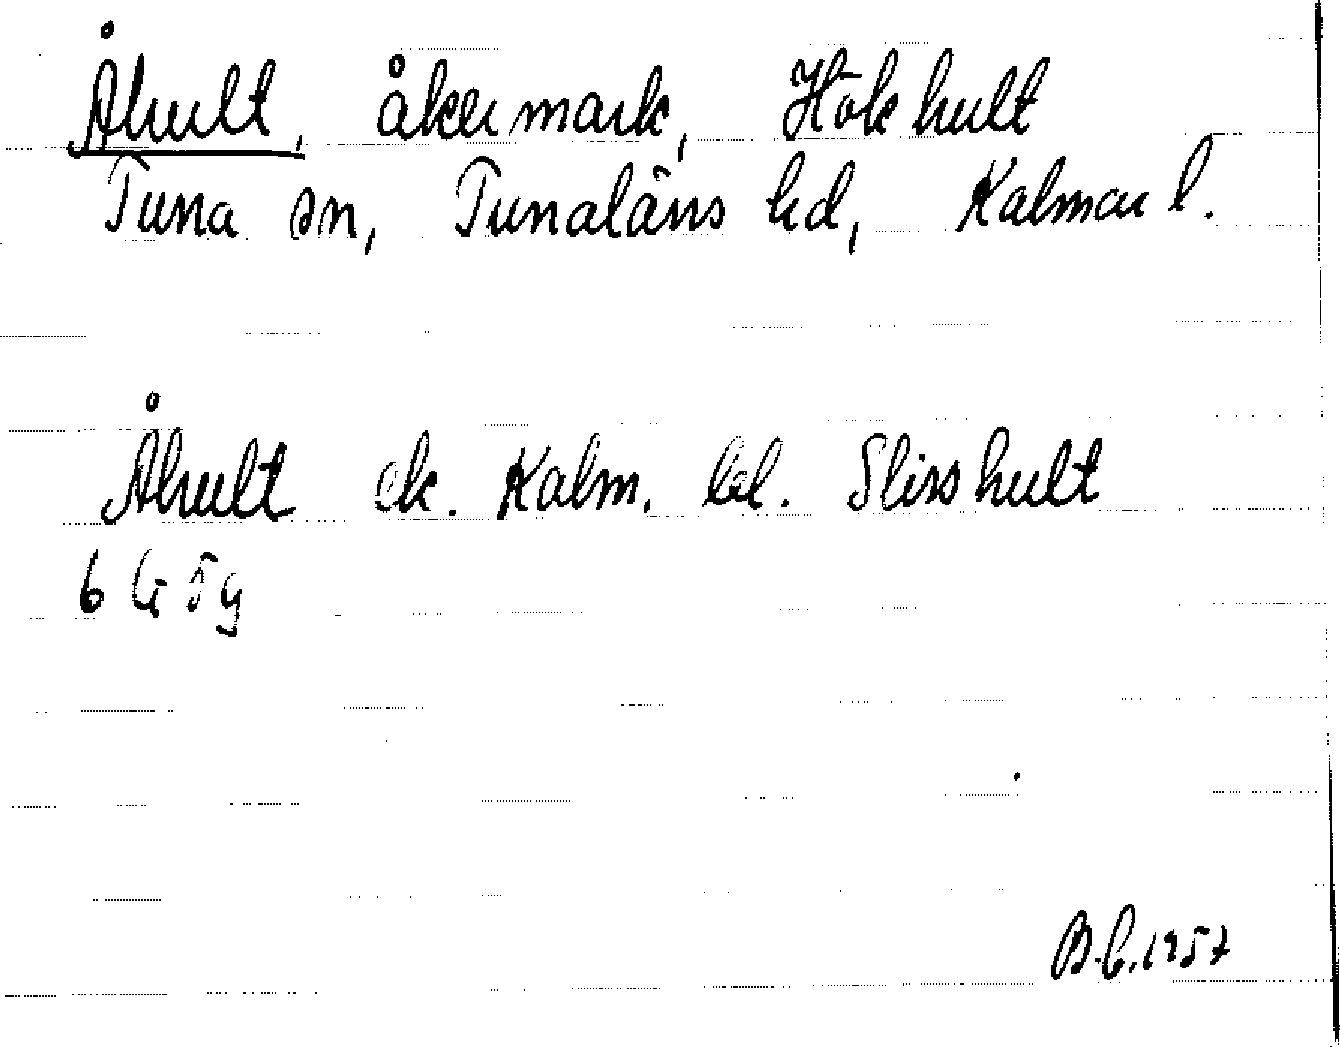 Åhult, åkermark, Hökhult
Tuna sn, Tunaläns hd, Kalmar l.
Åhult ek. Kalm. bl. Slisshult
6 Gi 5g
B.C. 1957